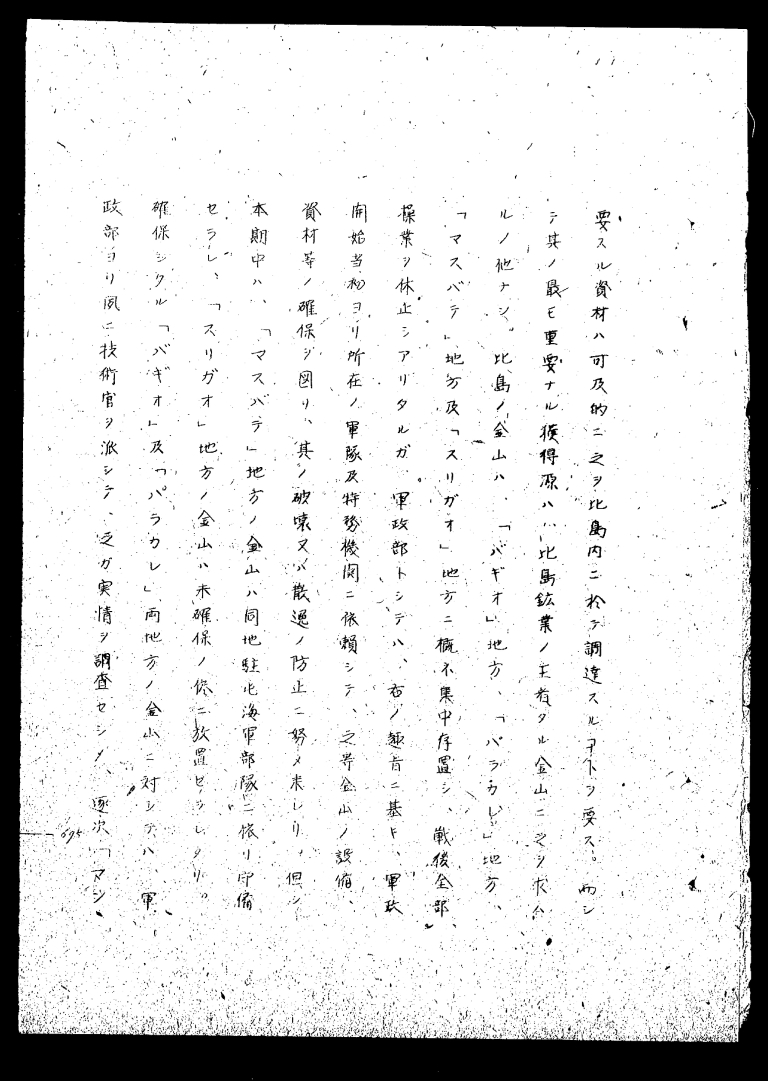 要スル資材ハ可及的ニ之ヲ比島内ニ於テ調達スルコトヲ要ス。而シ
テ其ノ最モ重要ナル獲得源ハ、比島鉱業ノ主者タル金山ニ之ヲ求ム
ルノ他ナシ。比島ノ金山ハ、「バギオ」地方、「パラカレ」地方、
「マスバテ」地方及「スリガオ」地方ニ概ネ集中存置シ、戦後全部、
操業ヲ休止シアリタルガ、軍政部トシテハ、右ノ趣旨ニ基キ、軍政
開始当初ヨリ所在ノ軍隊及特務機関ニ依頼シテ、之等金山ノ設備、
資材等ノ確保ヲ図リ、其ノ破壊又ハ散逸ノ防止ニ努メ来レリ、但シ
本期中ハ、「マスバテ」地方ノ金山ハ同地駐屯海軍部隊ニ依リ守備
セラレ、「スリガオ」地方ノ金山ハ未確保ノ侭ニ放置セラレタリ。
確保シタル「バギオ」及「パラカレ」両地方ノ金山ニ対シテハ、軍
政部ヨリ夙ニ技術官ヲ派シテ、之ガ実情ヲ調査セシメ、逐次「マン